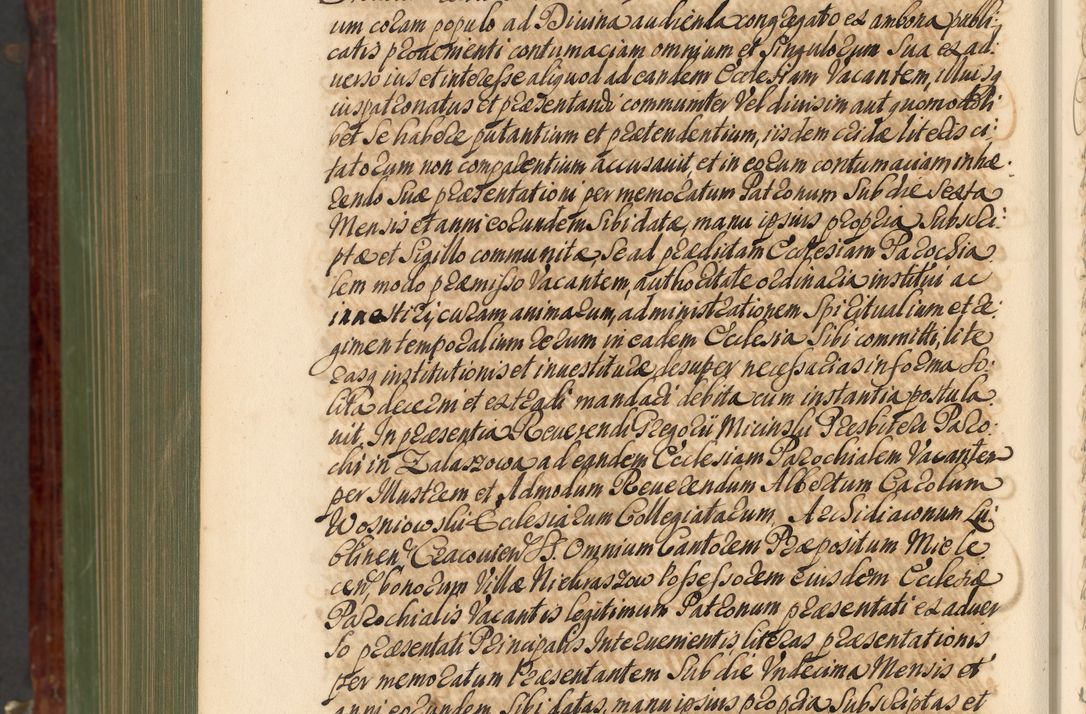 um coram populo ad Divina audienda congregato ex ambona publi-
catis procurenti contumaciam omnium et Singulorum Sua ex ad-
verso ius et interesse aliquod ad eandem Ecclesiam Vacantem, illiusq
iuspatronatus et præsentandi communiter Vel divisim aut quomodoli-
bet se habere putantium et prætendentium, iisdem cridæ literis ci-
tatorum non comparentium accusavit, et in eorum contumaciam inhæ-
rendo Suæ præsentationi per memoratum Patronum Sub die Sexta
Mensis et anni eorundem Sibi datæ, manu ipsius propria Subscri-
ptæ et Sigillo communitæ Se ad prædictam Ecclesiam Parochia
lem modo præmisso Vacantem, authoritate ordinaria institui ac
investiri, curam animarum, administrationem Spiritualium et re-
gimen temporalium rerum in eadem Ecclesia Sibi committi, lite
rasq institutionis et investituræ desuper necessarias in forma So-
lita decerni et extradi mandari debita cum instantia postula
vit. In præsentia Reverendi Gregorii Micinski Presbiteri Paro-
chi in Zalaszowa ad eandem Ecclesiam Parochialem Vacantem
per Illustrem et Admodum Reverendum Albertum Carolum
Wosniowski Ecclesiarum Collegiatarum, Archidiaconum Lu-
blinen, Cracovien SS. Omnium Cantorem Præpositum Miele
cen, bonorum Villæ Niekraszow Possessorem eiusdem Ecclesiæ
Parochialis Vacantis legitimum Patronum præsentati ex adver
so præsentati Principalis Intervenientis literas præsentationis
per memoratum Præsentantem Sub die Undecima Mensis et
anni eorundem Sibi datas, manu ipsius propria Subscriptas et